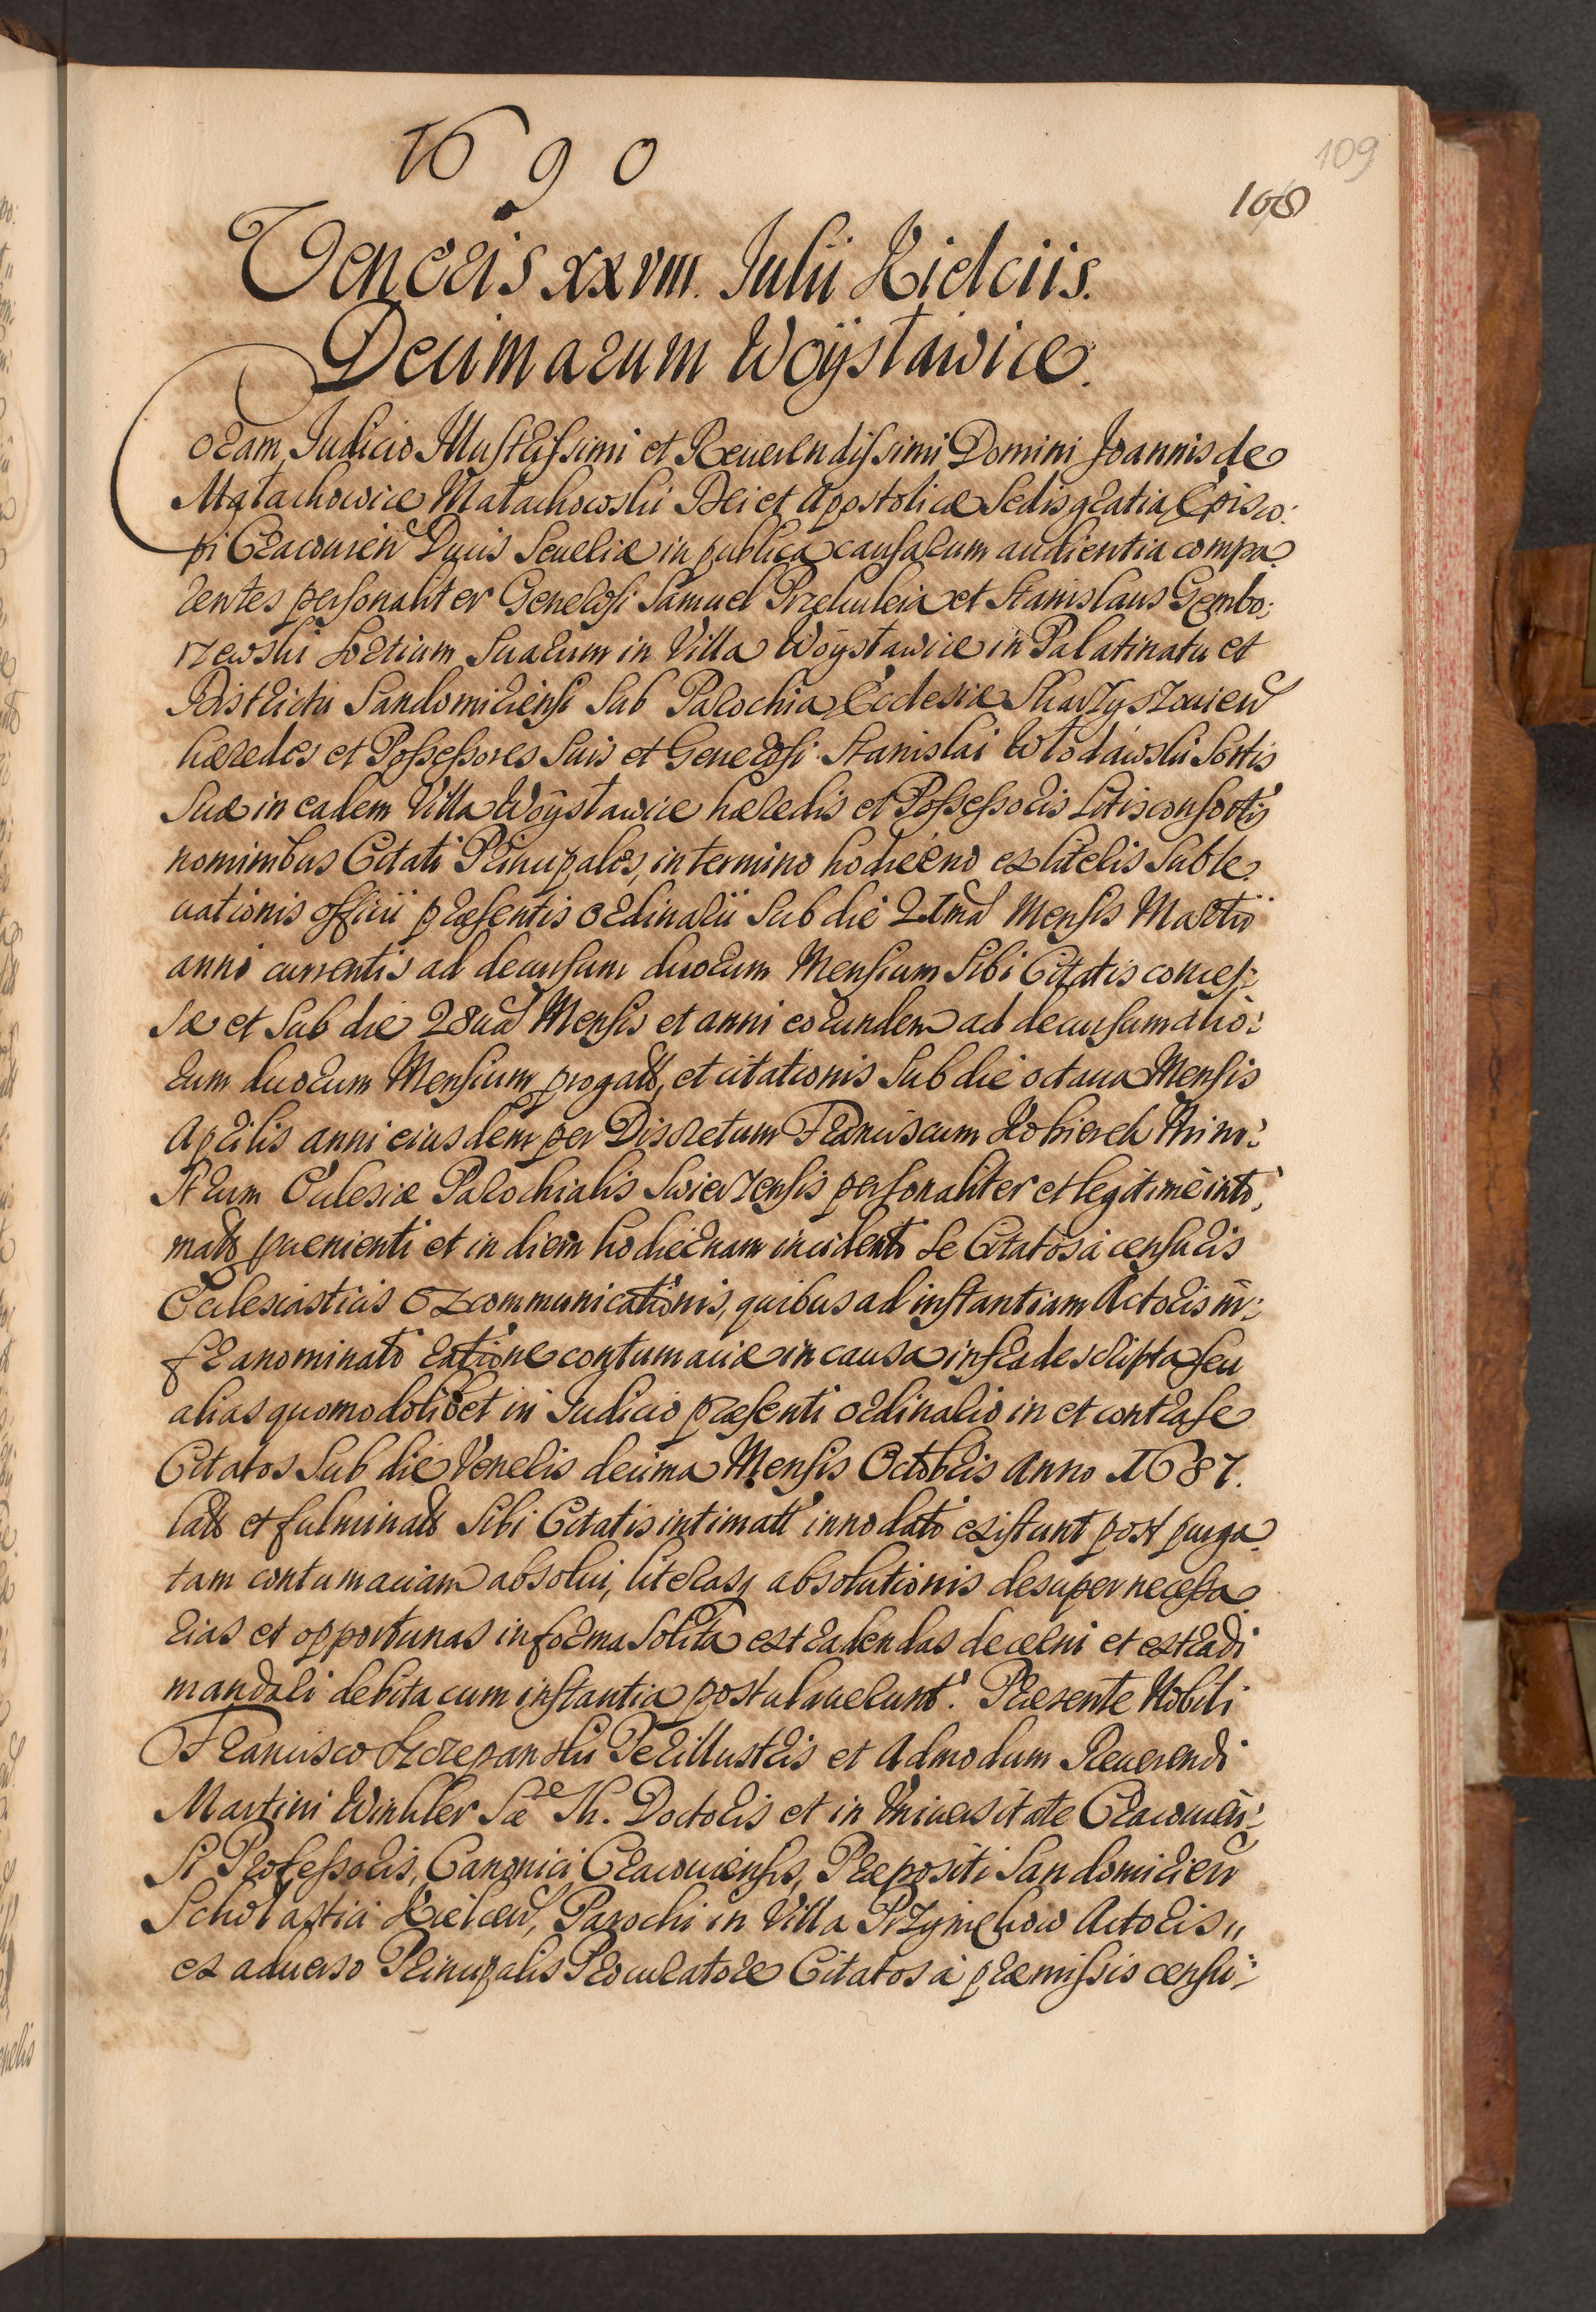 1690
109
108
Veneris XXVIII. Julii Kielciis.
Decimarum Woÿsławice.
Coram Judicio Illustrissimi et Reuerendissimi Domini Joannis de
Małachowice Małachowski Dei et Apostolicæ Sedis gratia Episco:
pi Cracouien Ducis Seueriæ in publica causarum audientia compa
rentes personaliter Generosi Samuel Przekuleia et Stanislaus Gembo:
rzewski Sortium Suarum in Villa Woÿsławice in Palatinatu et
Districtu Sandomiriensi Sub Parochia Ecclesiæ Skarzyszouien
hæredes et Possessores Suis et Generosi Stanislai Włodawski Sortis
Suæ in eadem Villa Woÿsławice hæredis et Possessoris Litisconsortis
nominibus Citati Principales, in termino hodierno ex literis Suble
uationis officii præsentis ordinarii Sub die 21ma Mensis Martii
anni currentis ad decursum duorum Mensium Sibi Citatis conces:
sæ et Sub die 28ua Mensis et anni eorundem ad decursum alio:
rum duorum Mensium progatt, et citationis Sub die octaua Mensis
Aprilis anni eiusdem per Discretum Franciscum Kobierek Mini:
strum Ecclesiæ Parochialis Swierzensis personaliter et legitimè inti:
matt prouenienti et in diem hodiernam incidenti Se Citatos à censuris
Ecclesiasticis excommunicationis, quibus ad instantiam Actoris in:
franominati ratione contumaciæ in causa infradescripta seu
alias quomodolibet in Judicio præsenti ordinario in et contra se
Citatos Sub die Veneris decima Mensis Octobris Anno 1687.
latt et fulminatt Sibi Citatis intimatt innodati existunt post purga
tam contumaciam absolui, literasq absolutionis desuper necessa
rias et opportunas in forma Solita extradendas decerni et extradi
mandari debita cum instantia postulauerunt. Præsente Nobili
Francisco Szczepanski Perillustris et Admodum Reuerendi
Martini Winkler Sæ Th. Doctoris et in Vniuersitate Cracouien:
si Professoris, Canonici Cracouiensis, Præpositi Sandomirien
Scholastici Kielcen, Parochi in Villa Przymchow Actoris
ex aduerso Principalis Procuratore Citatos à præmissis censu: